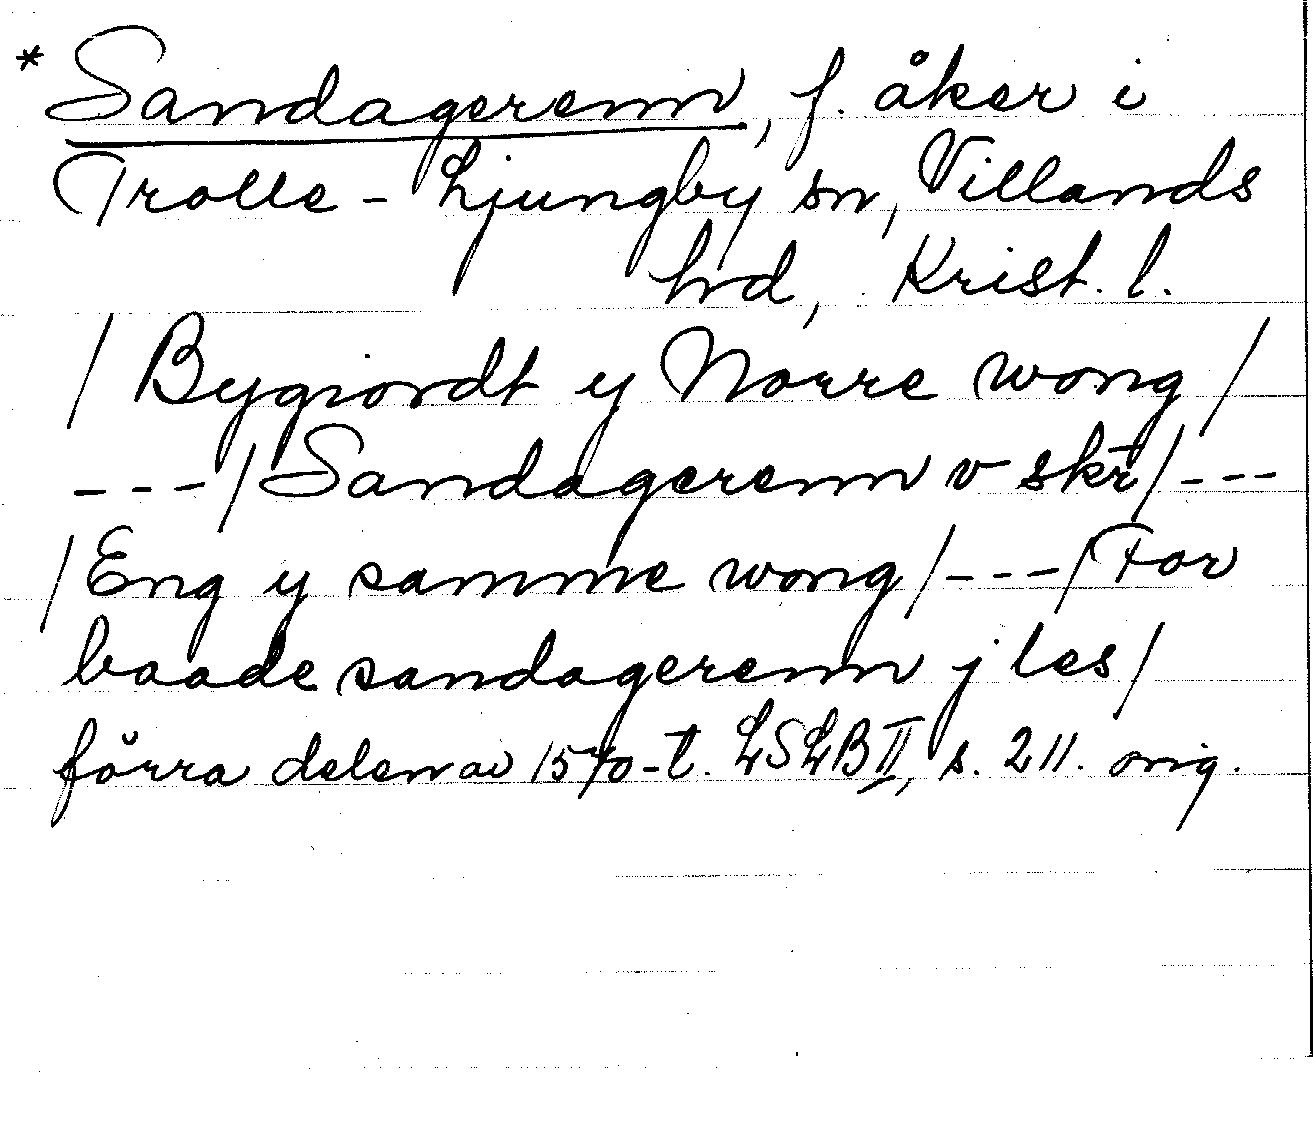 * Sandagerenn, f. åker i
Trolle-Ljungby sn, Villands
hd, Krist. l.
/ Bygiordt y Norre wong /
---/ Sandagerenn v skr̄ / ---
/ Eng y samme wong / --- / For
baade sandagerenn j les /
förra delen av 1570-t. LSLB II, s. 211. orig.